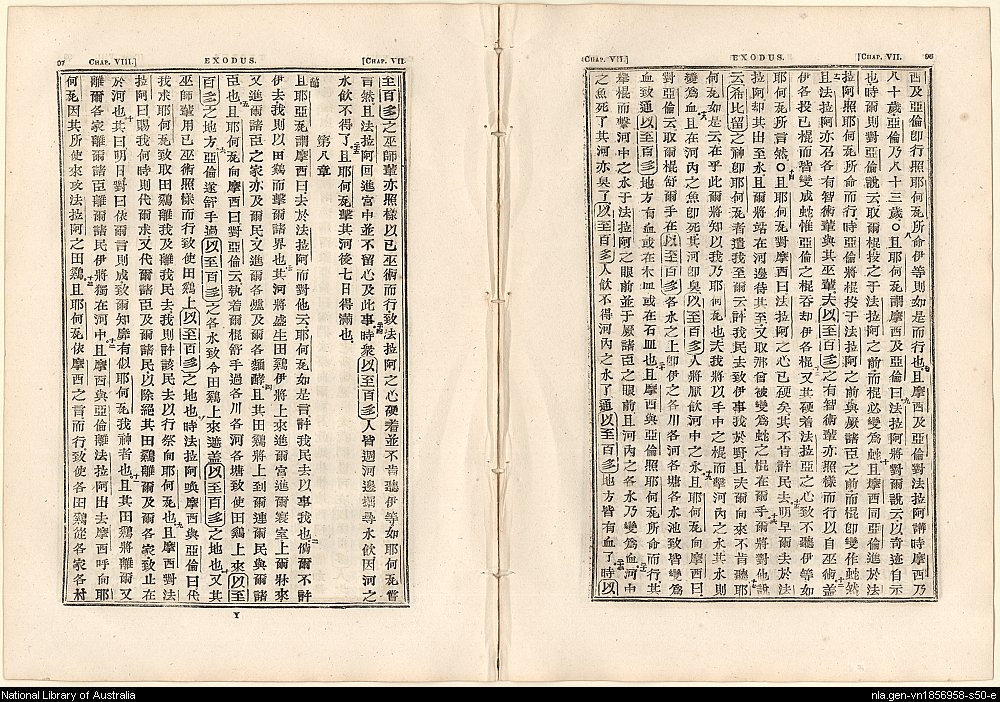 (CHAP. VII.] EXODUS. [CHAP. VII. 96
西及亞倫卽行照耶何瓦所命伊等則如是而行也且摩西及亞倫對法拉阿講時摩西乃
八十歲亞倫乃八十三歲○且耶何瓦謂摩西及亞倫曰法拉阿將對爾說云以奇迹自示
也時爾則對亞倫說云取爾棍投之于法拉阿之前而棍必變爲蛇且摩西同亞倫進於法
拉阿照耶何瓦所命而行時亞倫將棍投于法拉阿之前與厥諸臣之前而棍卽變作蛇然
且法拉阿亦召各有智術輩與其巫輩夫以至百多之有智術輩亦照樣而行以自巫術蓋
伊各投已棍而皆變成蛇惟亞倫之棍吞却伊各棍又其硬着法拉亞之心致不聽伊等如
耶何瓦所言然○且耶何瓦對摩西曰法拉阿之心已硬矣其不肯許民去明早爾去於法
拉阿却其出至水且爾將站在河邊待其至又取那曾被變爲蛇之棍在爾手爾將對他說
云希比留之神卽耶何瓦者遣我至爾云許我民去致伊事我於野且夫爾向來不肯聽耶
何瓦如是云在乎此爾將知以我乃耶何瓦也夫我將以手中之棍而擊河内之水其水則
變爲血且在河内之魚卽死其河卽臭以至百多人將厭飲河中之水且耶何瓦向摩西曰
對亞倫云取爾棍舒爾手在以至百多各水之上卽伊之各川各河各塘各水池致皆變爲
血致通以至百多地方有血或在木皿或在石皿也且摩西與亞倫照耶何瓦所命而行其
舉棍而擊河中之水于法拉阿之眼前並于厥諸臣之眼前且河内之各水乃變爲血河中
之魚死了其河亦臭了以至百多人飲不得河内之水了通以至百多地方皆有血了時以
97 CHAP. VIII.] EXODUS. [CHAP. VII
至百多之巫師輩亦照樣以已巫術而行致法拉阿之心硬着並不肯聽伊等如耶何瓦嘗
言然且法拉阿回進宮中並不留心及此事時衆以至百多人皆週河邊掘尋水飲因河之
水飲不得了且耶何瓦擊其河後七日得滿也
第八章
且耶亞瓦謂摩西曰去於法拉阿而對他云耶何瓦如是言許我民去以事我也倘爾不許
伊去我則以田鷄而擊爾諸界也其河將盛生田鷄伊將上來進爾宮進爾寢室上爾牀來
又進爾諸臣之家亦及爾民又進爾各爐及爾各麵酵且其田鷄將上到爾連爾民與爾諸
臣也且耶何瓦向摩西曰對亞倫云執着爾棍舒手過各川各河各塘致使田鷄上來以至
百多之地方亞倫遂舒手過以至百多之各水致令田鷄上來遮蓋以至百多之地也又其
巫師輩用已巫術照樣而行致使田鷄上以至百多之地也時法拉阿喚摩西與亞倫曰代
我求耶何瓦致取田鷄離我及離我民去我則許該民去以行祭向耶何瓦也且摩西對法
拉阿曰賜我何時則代爾求又代爾諸臣及爾諸民以除絕其田鷄離爾及爾各家致止在
於河也其曰明日對曰依爾言則成致爾知靡有似耶何瓦我神者也且其田鷄將離爾又
離爾各家離爾諸臣離爾諸民伊將獨在河中且摩西與亞倫離法拉阿出去摩西呼向耶
何瓦因其所使來攻法拉阿之田鷄且耶何瓦依摩西之言而行致使各田鷄從各家各村
Y
National Library of Australia
nla.gen-vn1856958-s50-e